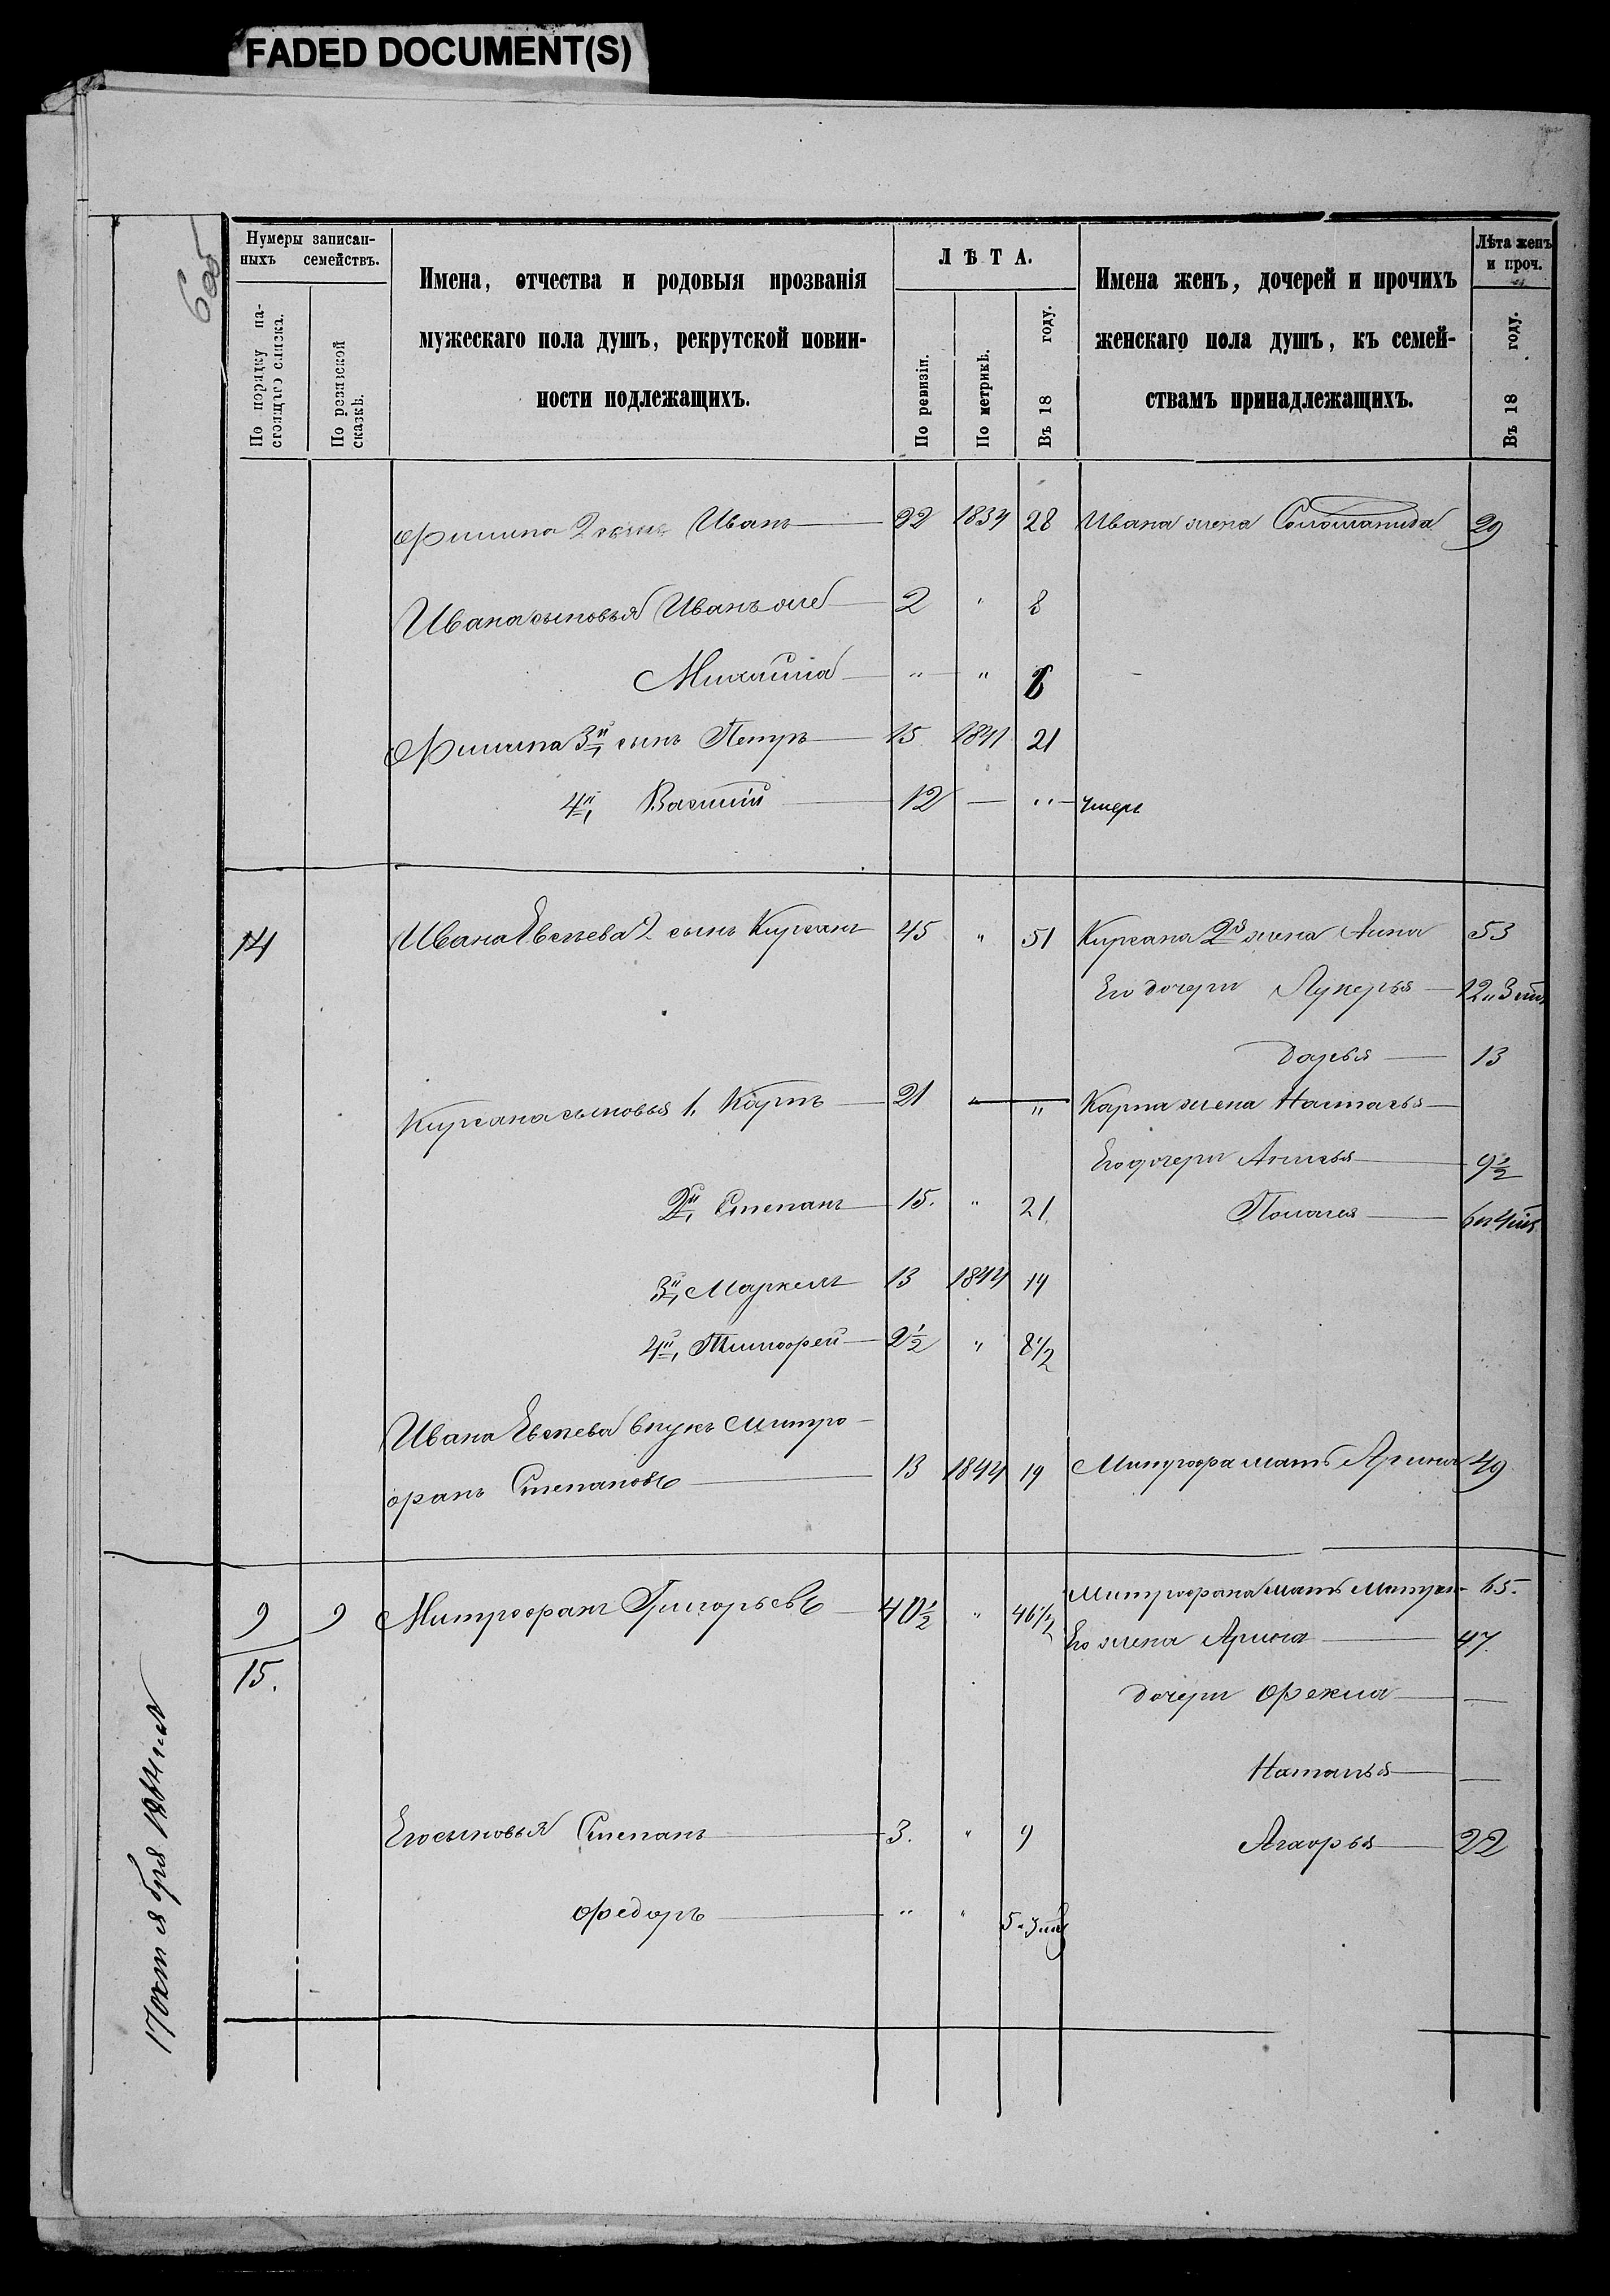 FADED DOCUMENT(S)
Нумеры записан-
ныхъ семействъ.
По порядку на-
стоящаго списка.
По ревизской
сказкѣ.
Имена, отчества и родовыя прозванія
мужескаго пола душъ, рекрутской повин-
ности подлежащихъ.
ЛѢТА.
По ревизіи.
По метрикѣ.
Въ 18 году.
Имена женъ, дочерей и прочихъ
женскаго пола душъ, къ семей-
ствамъ принадлежащихъ.
Лѣта женъ
и проч.
Въ 18 году.
Филипа 2 сынъ Иванъ 22 1834 28 Ивана жена Соломанида 29
Ивана сыновья Иванъ же 2 " 8
Михаила " "
Филипа 3й, сынъ Петръ 15 1841 21
4й, Василій 12 — " умеръ
14 Ивана Евсѣева 2 сынъ Кирсанъ 45 " 51 Кирсана 2я жена Анна 53
Его дочери Лукерья
Дарья 13
Кирсана сыновья 1, Карпъ 21 " " Карпа жена Настасья
Его дочери Анисья 9½
2й, Степанъ 15. " 21. Полагея
3й, Маркелъ 13 1844 19
4й, Тимофей 2½ " 8½
Ивана Евсѣева внукъ Митро-
фанъ Степановъ 13 1844 19 Митрофа мать Арина 49
9 9 Митрофанъ Григорьевъ 40½ " 46½ Митрофана мать 65.
15. Его жена Арина 47.
дочери Фекла —
Наталья —
Его сыновья Степанъ 3. " 9 Агафья 22
Федоръ " "
17 октября 1864 года